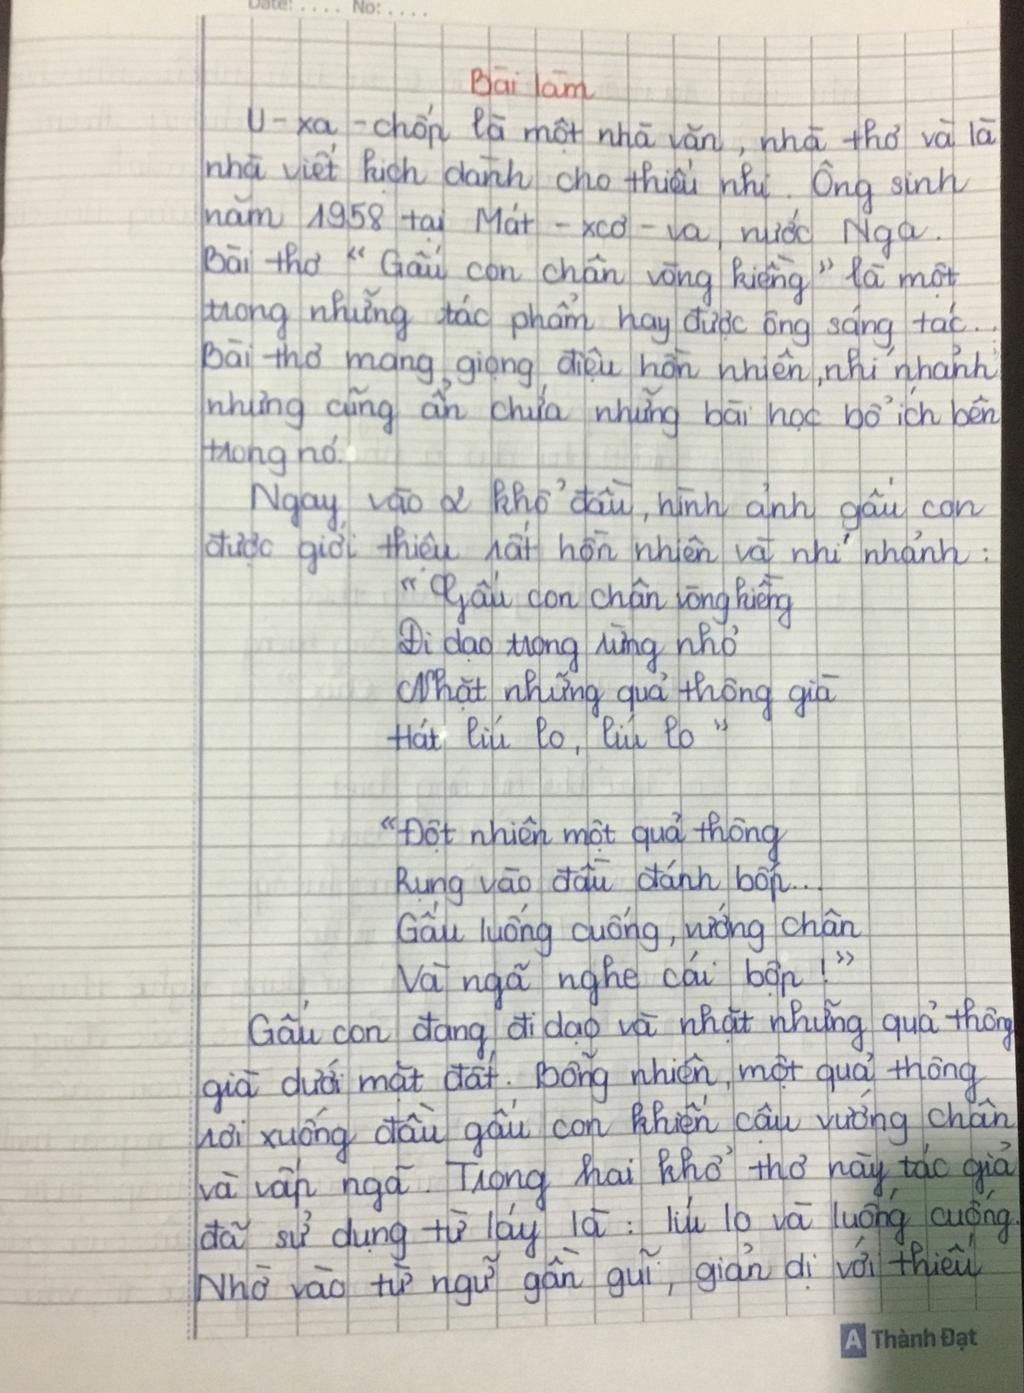 Date: .... No: ....
Bài làm
U-xa-chốp là một nhà văn, nhà thơ và là
nhà viết kịch dành cho thiếu nhi. Ông sinh
năm 1958 tại Mát-xcơ-va, nước Nga.
Bài thơ "Gấu con chân vòng kiềng" là một
trong những tác phẩm hay được ông sáng tác...
Bài thơ mang giọng điệu hồn nhiên, nhí nhảnh
nhưng cũng ẩn chứa những bài học bổ ích bên
trong nó.
Ngay vào 2 khổ đầu, hình ảnh gấu con
được giới thiệu rất hồn nhiên và nhí nhảnh:
"Gấu con chân vòng kiềng
Đi dạo trong rừng nhỏ
Nhặt những quả thông già
Hát líu lo, líu lo"
"Đột nhiên một quả thông
Rụng vào đầu đánh bốp...
Gấu luống cuống, vướng chân
Và ngã nghe cái bộp!"
Gấu con đang đi dạo và nhặt những quả thông
già dưới mặt đất. Bỗng nhiên, một quả thông
rơi xuống đầu gấu con khiến cậu vướng chân
và vấp ngã. Trong hai khổ thơ này tác giả
đã sử dụng từ láy là: líu lo và luống cuống.
Nhờ vào từ ngữ gần gũi, giản dị với thiếu
A Thành Đạt